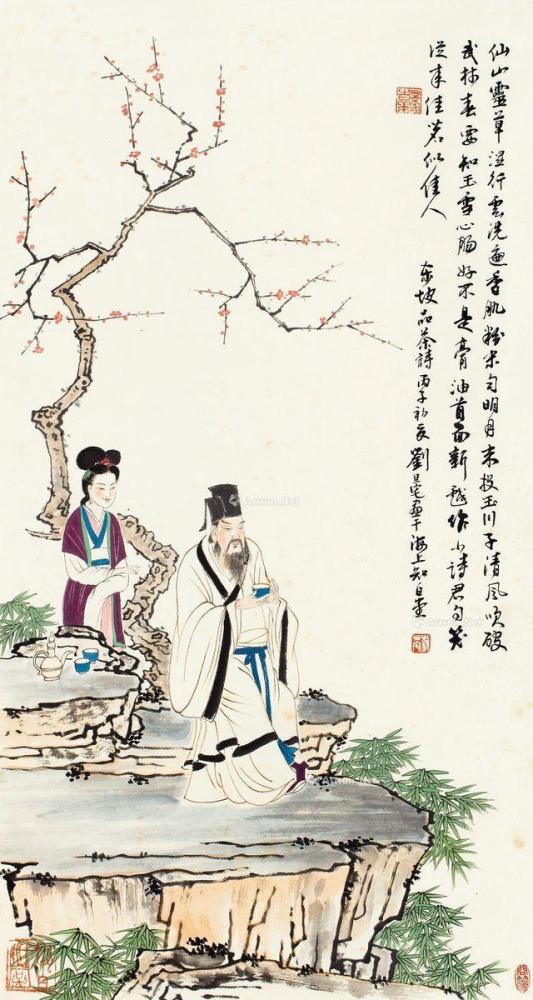 仙山靈草濕行雲洗遍香肌粉未勻明月來投玉川子清風吹破
武林春要知玉雪心腸好不是膏油首面新戲作小詩君勿笑
從來佳茗似佳人
東坡品茶詩丙子初夏劉旦宅畫于海上知白堂
Artron.Net
Artron.Net